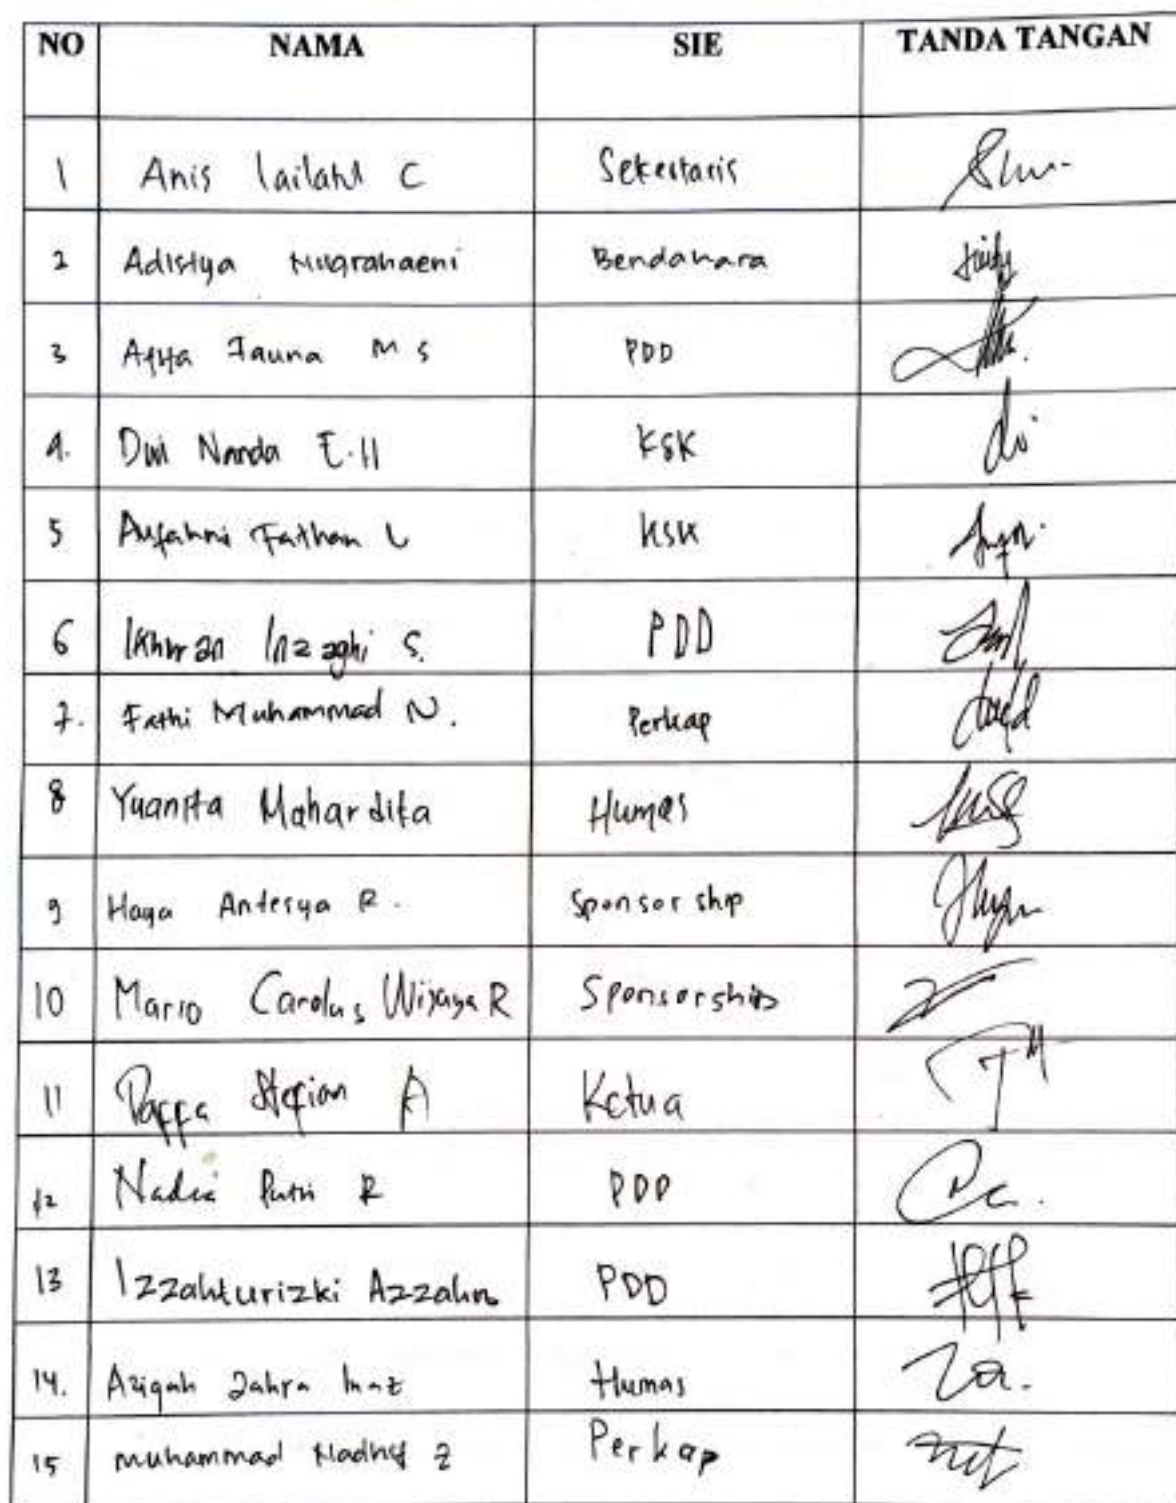 NO NAMA SIE TANDA TANGAN
1 Anis lailatul C Sekertaris
2 Adistya Nugrahaeni Bendahara
3 Fauna M S PDD
4. Dwi Nanda E.H KSK
5 Fathan L KSK
6 Inzaghi S. PDD
7. Fathi Muhammad N. Perkap
8 Yuanita Mahardita Humas
9 Haya Antesya R. Sponsorship
10 Mario Carolus Wijaya R Sponsorship
11 Daffa Stefian A Ketua
12 Nadia Putri R PDD
13 Izzahturizki Azzahra PDD
14. Aziqah Zahra Humas
15 Muhammad Nadhif Z Perkap